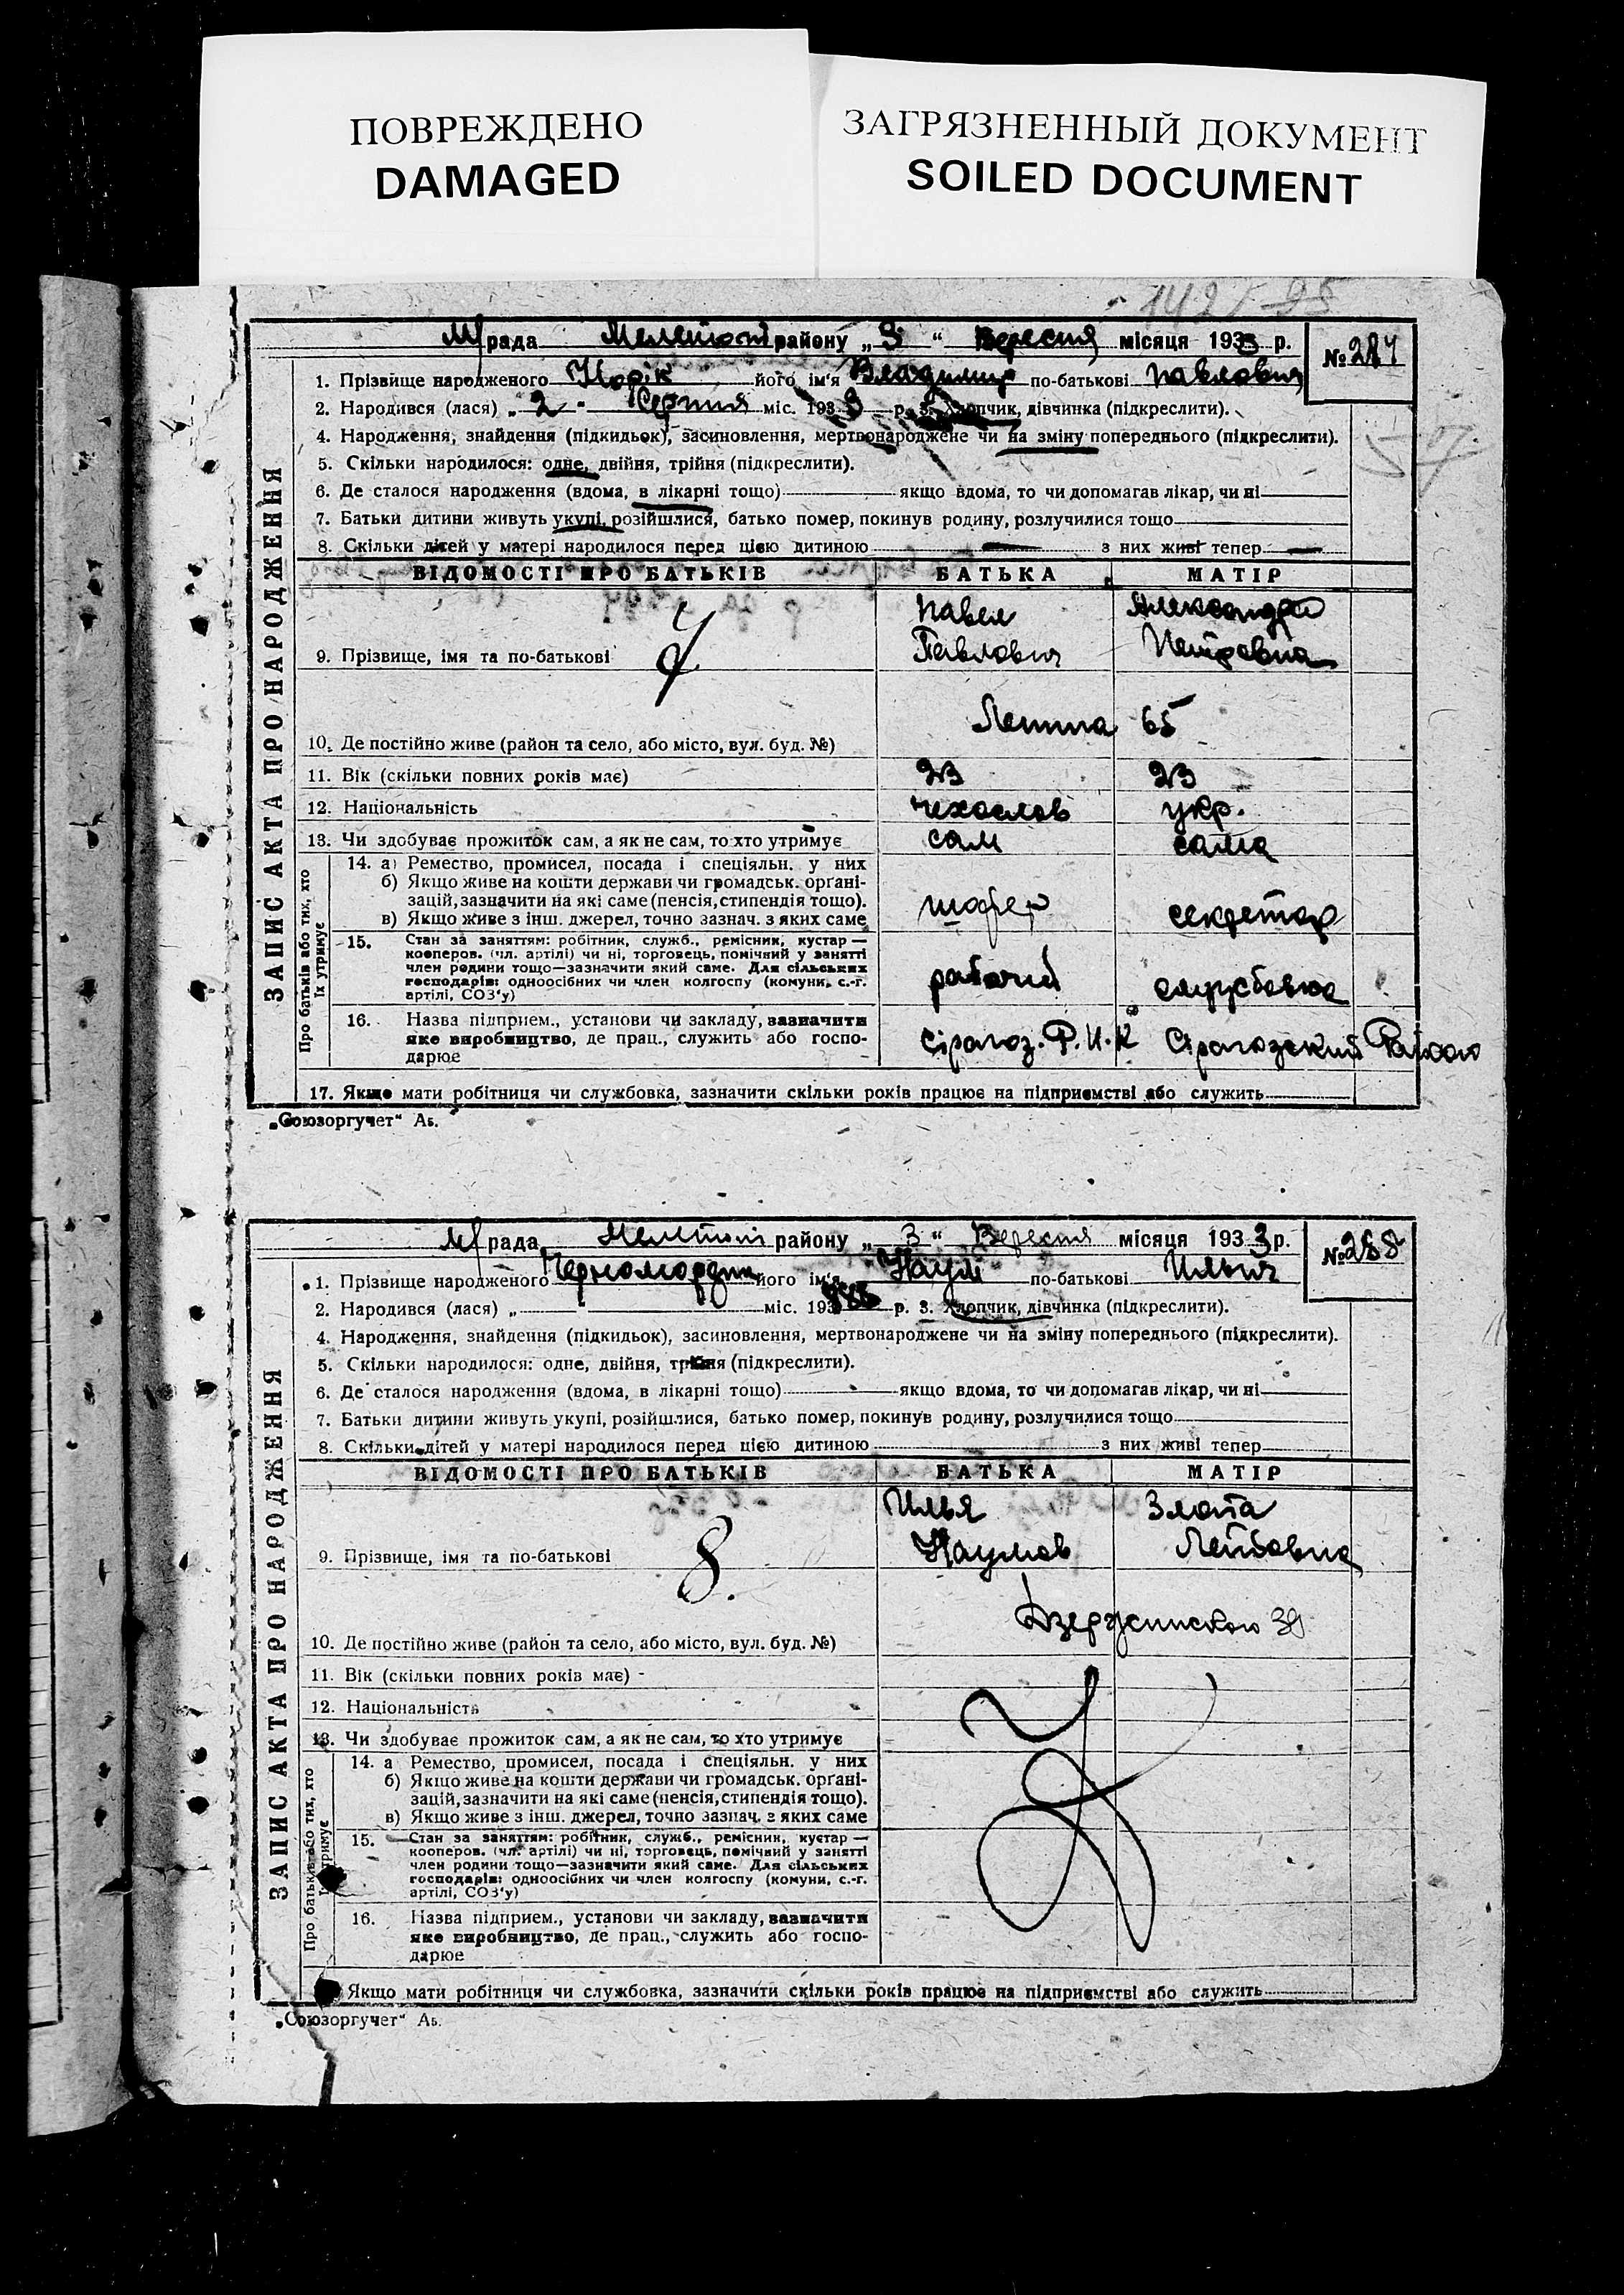 ПОВРЕЖДЕНО
DAMAGED
ЗАГРЯЗНЕННЫЙ ДОКУМЕНТ
SOILED DOCUMENT
ЗАПИС АКТА ПРО НАРОДЖЕННЯ
М/рада Мелітоп району „3“ Вересня місяця 1933 р.
№ 287
1. Прізвище народженого його ім'я Владимир по-батькові Павлович
2. Народився (лася) „2“ Серпня міс. 1933 р. 3. Хлопчик, дівчинка (підкреслити).
4. Народження, знайдення (підкидьок), засиновлення, мертвонароджене чи на зміну попереднього (підкреслити).
5. Скільки народилося: одне, двійня, трійня (підкреслити).
6. Де сталося народження (вдома, в лікарні тощо) якщо вдома, то чи допомагав лікар, чи ні
7. Батьки дитини живуть укупі, розійшлися, батько помер, покинув родину, розлучилися тощо
8. Скільки дітей у матері народилося перед цією дитиною — з них живі тепер —
ВІДОМОСТІ ПРО БАТЬКІВ БАТЬКА МАТІР
9. Прізвище, імя та по-батькові Павел Павлович Александра Петровна
10. Де постійно живе (район та село, або місто, вул. буд. №) Ленина 65
11. Вік (скільки повних років має) 23 23
12. Національність чехослов укр.
13. Чи здобуває прожиток сам, а як не сам, то хто утримує сам сама
Про батьків або тих, хто їх утримує
14. а) Ремество, промисел, посада і спеціяльн. у них
б) Якщо живе на кошти держави чи громадськ. орґані-
зацій, зазначити на які саме (пенсія, стипендія тощо).
в) Якщо живе з інш. джерел, точно зазнач. з яких саме
шофер секретар
15. Стан за заняттям: робітник, служб., ремісник, кустар —
кооперов. (чл. артілі) чи ні, торговець, помічний у занятті
член родини тощо—зазначити який саме. Для сільських
господарів: одноосібних чи член колгоспу (комуни, с.-г.
артілі, СОЗ'у)
рабочий службовка
16. Назва підприєм., установи чи закладу, зазначити
яке виробництво, де прац., служить або госпо-
дарює
Сірогоз. Р.И.К Сірогозский
17. Якщо мати робітниця чи службовка, зазначити скільки років працює на підприємстві або служить
„Союзоргучет“ Аь.
ЗАПИС АКТА ПРО НАРОДЖЕННЯ
М/рада Мелітоп району „3“ Вересня місяця 1933 р.
№ 288
1. Прізвище народженого Черномордин його ім'я Наум по-батькові Ильич
2. Народився (лася) „ міс. 193 р. 3. Хлопчик, дівчинка (підкреслити).
4. Народження, знайдення (підкидьок), засиновлення, мертвонароджене чи на зміну попереднього (підкреслити).
5. Скільки народилося: одне, двійня, трійня (підкреслити).
6. Де сталося народження (вдома, в лікарні тощо) якщо вдома, то чи допомагав лікар, чи ні
7. Батьки дитини живуть укупі, розійшлися, батько помер, покинув родину, розлучилися тощо
8. Скільки дітей у матері народилося перед цією дитиною з них живі тепер
ВІДОМОСТІ ПРО БАТЬКІВ БАТЬКА МАТІР
9. Прізвище, імя та по-батькові 8. Илья Наумов Злата Лейбовна
10. Де постійно живе (район та село, або місто, вул. буд. №) Дзержинского 39
11. Вік (скільки повних років має)
12. Національність
13. Чи здобуває прожиток сам, а як не сам, то хто утримує
Про батьків або тих, хто їх утримує
14. а Ремество, промисел, посада і спеціяльн. у них
б) Якщо живе на кошти держави чи громадськ. орґані-
зацій, зазначити на які саме (пенсія, стипендія тощо).
в) Якщо живе з інш. джерел, точно зазнач. з яких саме
15. Стан за заняттям: робітник, служб., ремісник, кустар —
кооперов. (чл. артілі) чи ні, торговець, помічний у занятті
член родини тощо—зазначити який саме. Для сільських
господарів: одноосібних чи член колгоспу (комуни, с.-г.
артілі, СОЗ'у)
16. Назва підприєм., установи чи закладу, зазначити
яке виробництво, де прац., служить або госпо-
дарює
Якщо мати робітниця чи службовка, зазначити скільки років працює на підприємстві або служить
„Союзоргучет“ Аь.